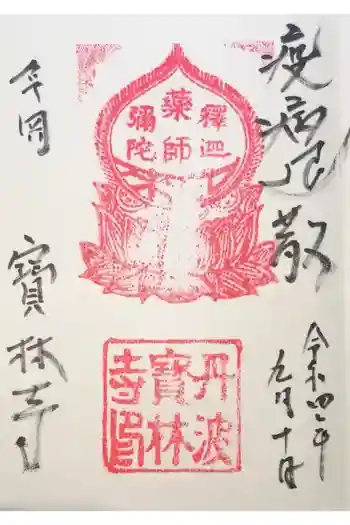 疫病退散
令和四年
九月十日
釋迦
藥師
彌陀
丹波
寶林
寺印
寶林寺